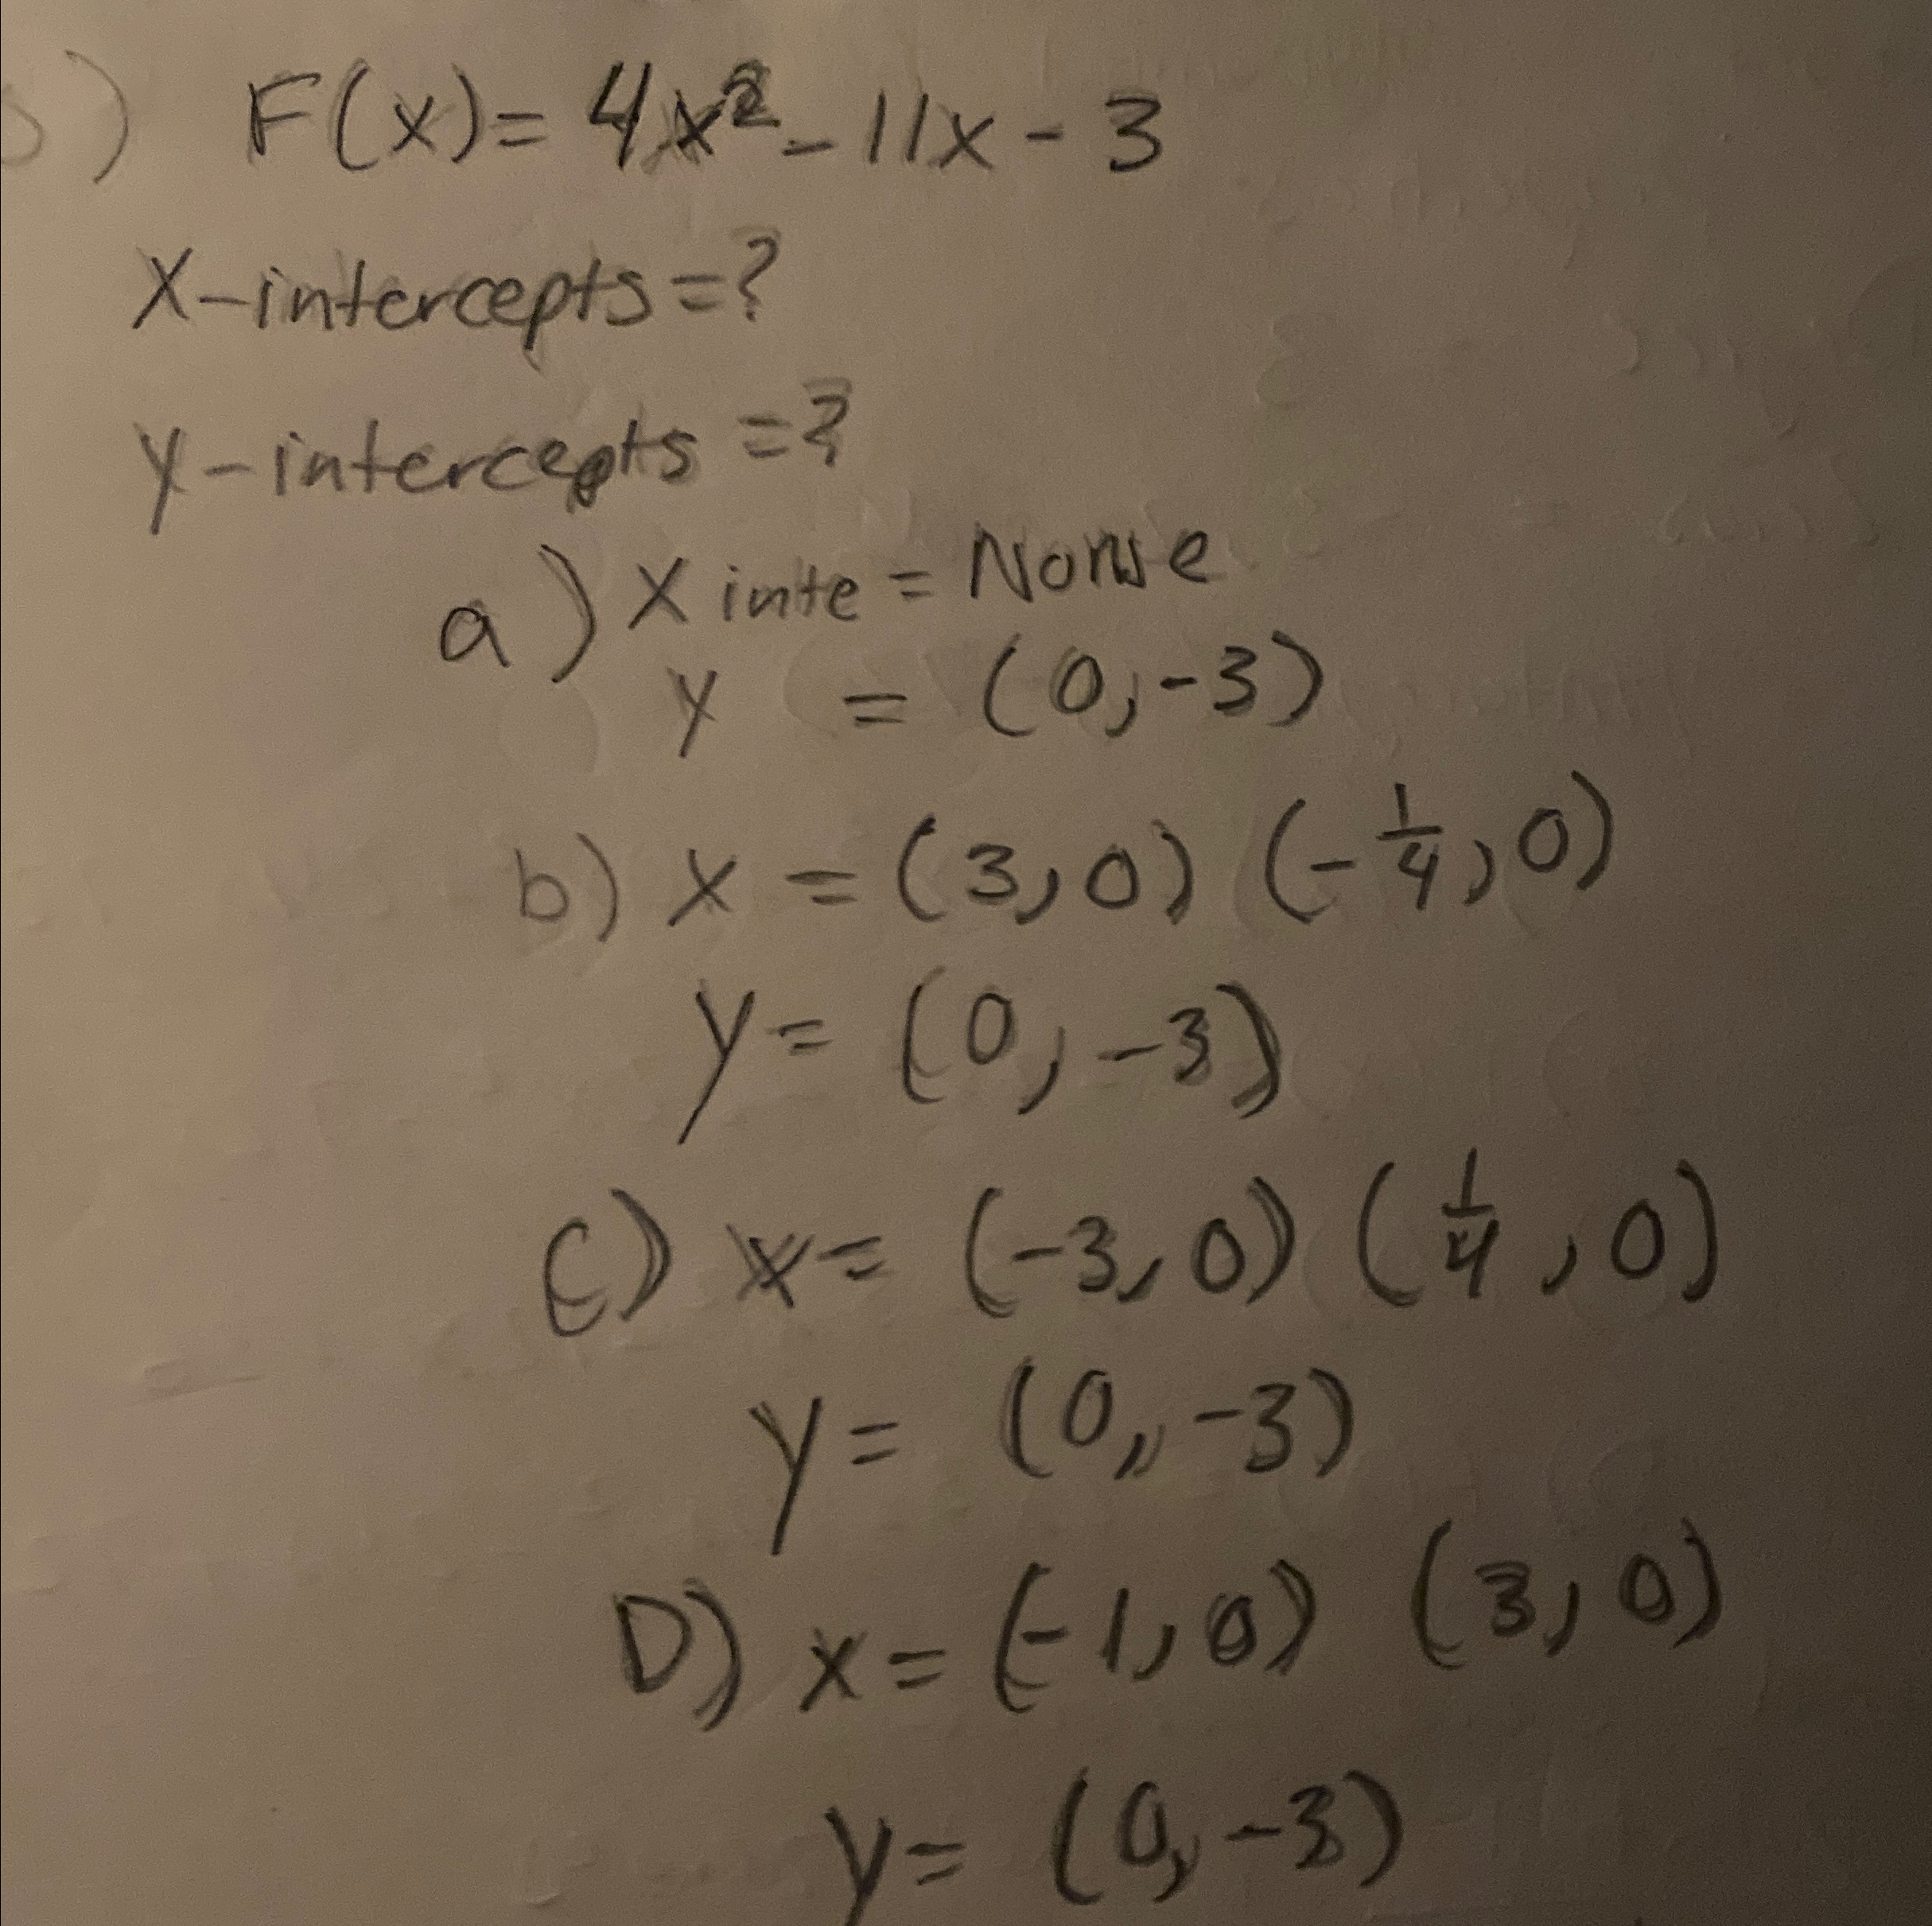 5) F(x)= 4x² - 11x - 3
X-intercepts=?
y-intercepts =?
a) X inte = None
y = (0,-3)
b) x = (3,0) (-1/4,0)
y= (0,-3)
C) x= (-3,0) (1/4,0)
y= (0,-3)
D) x= (-1,0) (3,0)
y= (0,-3)